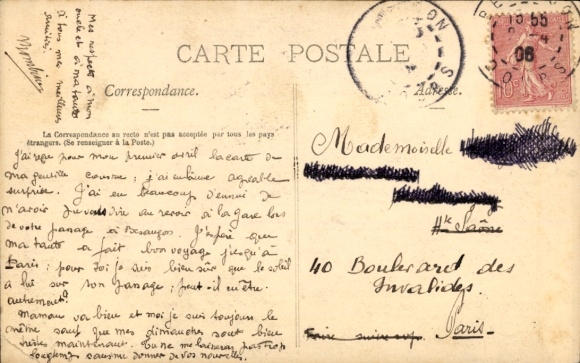 CARTE POSTALE
Correspondance.
Adresse.
La Correspondance au recto n'est pas acceptée par tous les pays
étrangers. (Se renseigner à la Poste.)
Mes respects à mon
oncle et à ma tante
à tous mes meilleures
amitiés.
J'ai reçu pour mon premier avril la carte de
ma gentille cousine; j'ai eu une agréable
surprise. J'ai eu beaucoup d'ennui de
n'avoir pu vous dire au revoir à la Gare lors
de votre passage à Besançon. J'espère que
ma tante a fait bon voyage jusqu'à
Paris; pour toi je suis bien sûr que le soleil
a lui sur ton passage; peut-il en être
autrement?
Maman va bien et moi je suis toujours le
même sauf que mes dimanches sont bien
tristes maintenant. Tu ne me laisseras pas trop
longtemps sans me donner de vos nouvelles.
Mademoiselle
Hte Saône
40 Boulevard des
Invalides.
Paris
Faire suivre
15 55
06